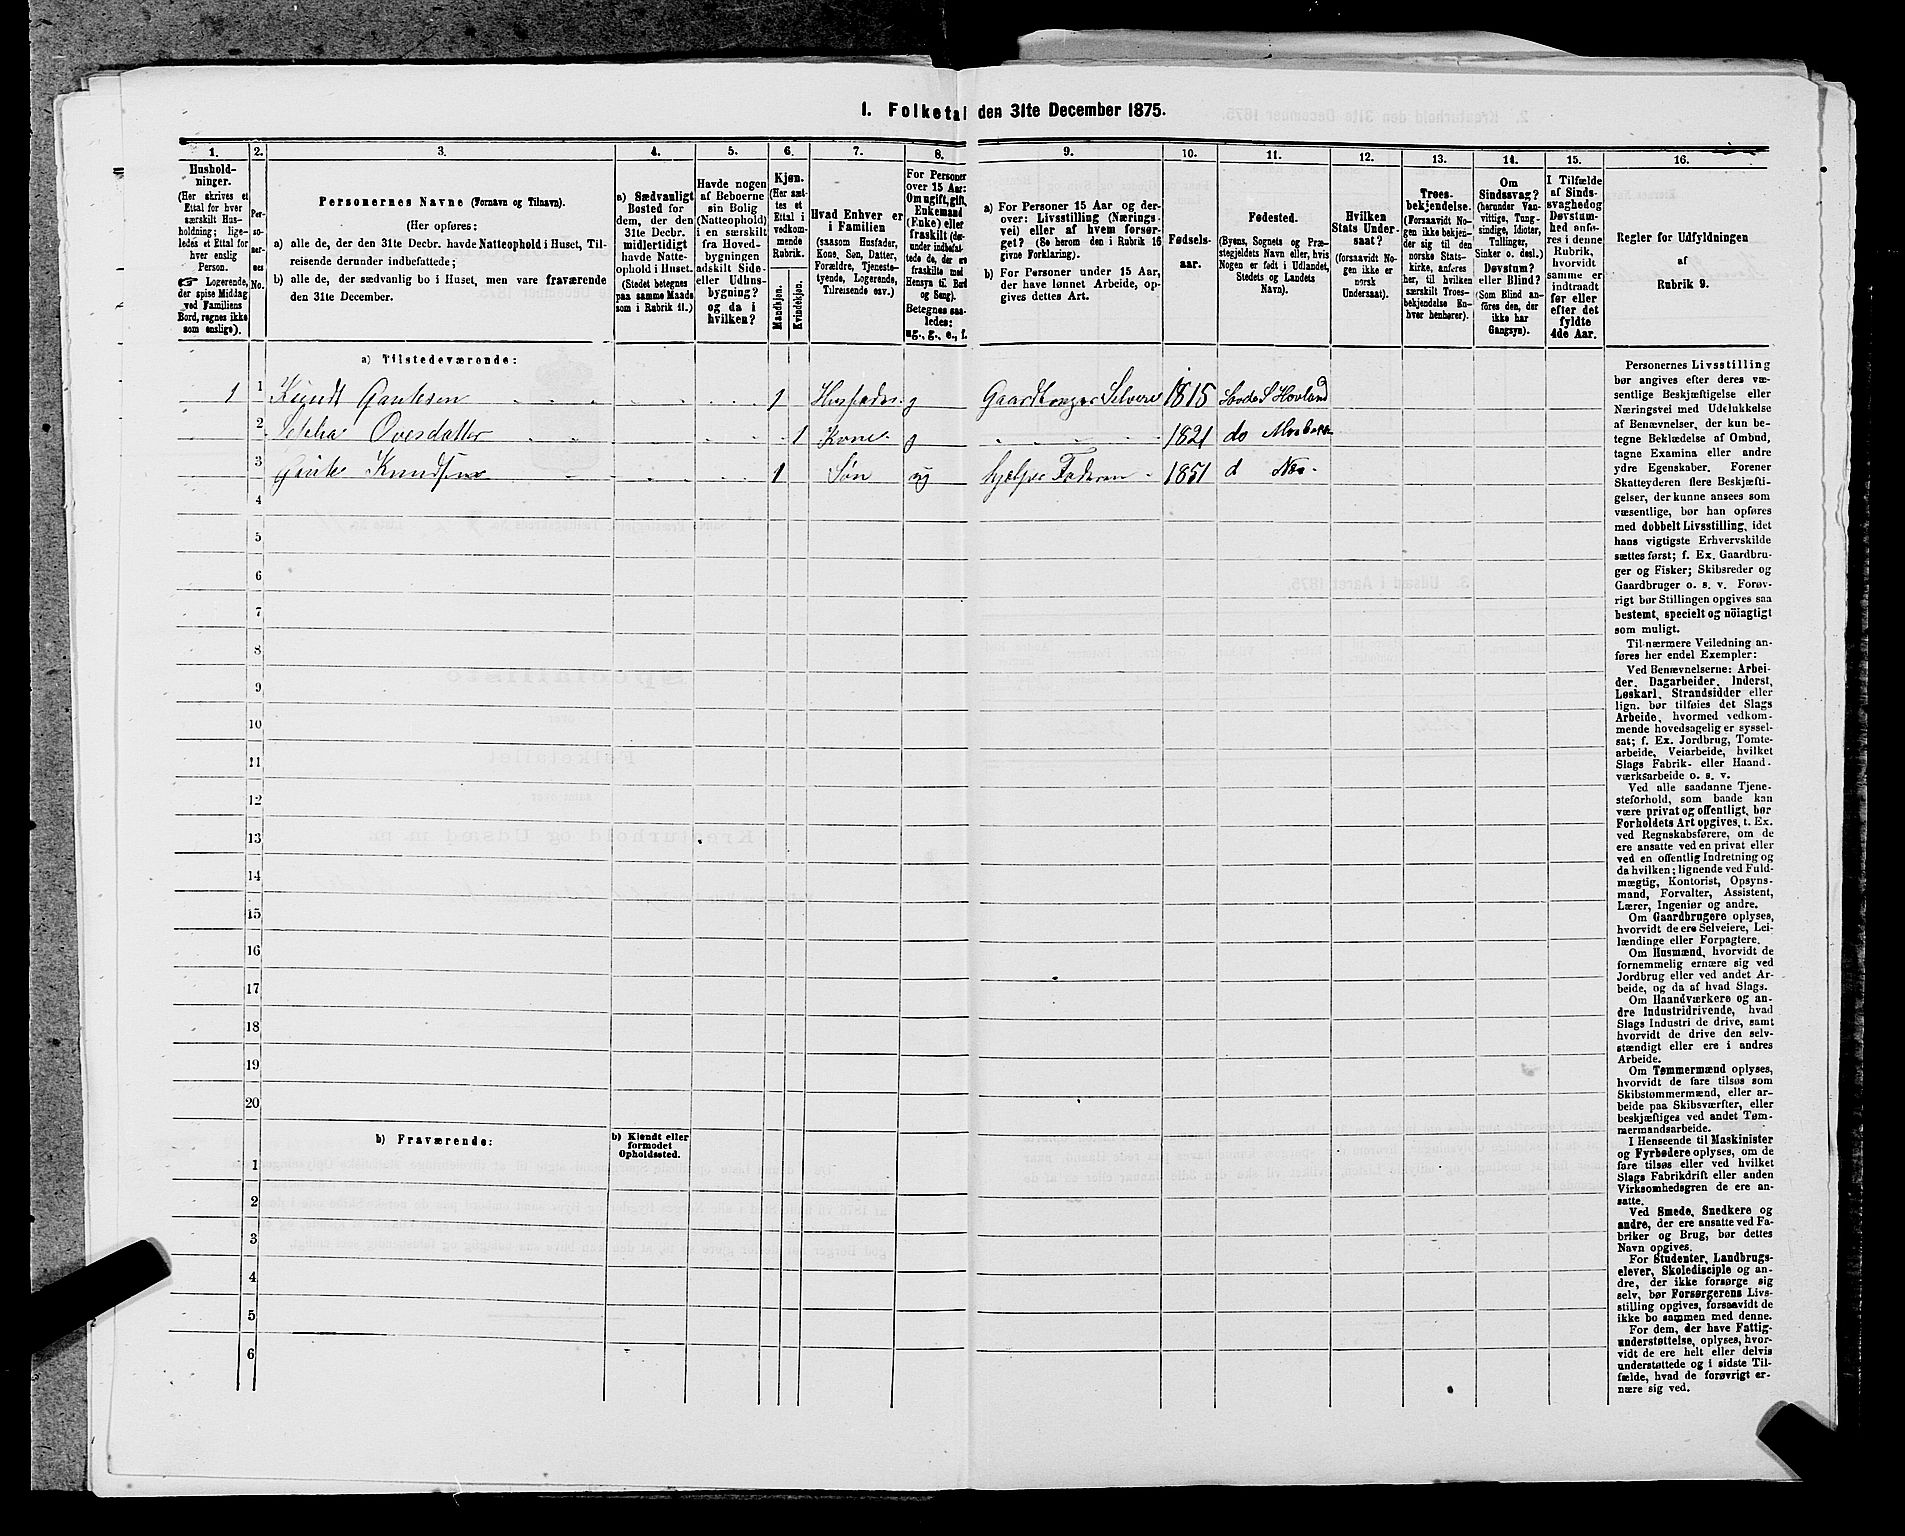 1. Folketal den 31te December 1875.
1.
Hushold-
ninger.
(Her skrives et
Ettal for hver
særskilt Hus-
holdning; lige-
ledes et Ettal for
hver enslig
Person.
☞ Logerende,
der spise Middag
ved Familiens
Bord, regnes ikke
som enslige).
2.
Per-
so-
ner-
nes
No.
3.
Personernes Navne (Fornavn og Tilnavn).
(Her opføres:
a) alle de, der den 31te Decbr. havde Natteophold i Huset, Til-
reisende derunder indbefattede;
b) alle de, der sædvanlig bo i Huset, men vare fraværende
den 31te December.
4.
a) Sædvanligt
Bosted for
dem, der den
31te Decbr.
midlertidigt
havde Natte-
ophold i Huset.
(Stedet betegnes
paa samme Maade
som i Rubrik 11.)
5.
Havde nogen
af Beboerne
sin Bolig
(Natteophold)
i en særskilt
fra Hoved-
bygningen
adskilt Side-
eller Udhus-
bygning?
og da i
hvilken?
6.
Kjøn.
(Her sæt-
tes et
Ettal i
vedkom-
mende
Rubrik.
Mandkjøn.
Kvindekjøn.
7.
Hvad Enhver er
i Familien
(saasom Husfader,
Kone, Søn, Datter,
Forældre, Tjeneste-
tyende, Logerende,
Tilreisende osv.)
8.
For Personer
over 15 Aar:
Om ugift, gift,
Enkemand
(Enke) eller
fraskilt (der-
under indbefat-
tede de, der ere
fraskilte med
Hensyn til Bord
og Seng).
Betegnes saa-
ledes:
ug., g., e., f.
9.
a) For Personer 15 Aar og der-
over: Livsstilling (Nærings-
vei) eller af hvem forsør-
get? (Se herom den i Rubrik 16
givne Forklaring).
b) For Personer under 15 Aar,
der have lønnet Arbeide, op-
gives dettes Art.
10.
Fødsels-
aar.
11.
Fødested.
(Byens, Sognets og Præ-
stegjeldets Navn eller, hvis
Nogen er født i Udlandet,
Stedets og Landets
Navn).
12.
Hvilken
Stats Under-
saat?
(forsaavidt No-
gen ikke er
norsk
Undersaat).
13.
Troes-
bekjendelse.
(Forsaavidt No-
gen ikke bekjen-
der sig til den
norske Stats-
kirke, anføres
her, til hvilken
særskilt Troes-
bekjendelse En-
hver henhører).
14.
Om
Sindssvag?
(herunder Van-
vittige, Tung-
sindige, Idioter,
Tullinger,
Sinker o. desl.)
Døvstum?
eller Blind?
(Som Blind an-
føres den, der
ikke har
Gangsyn).
15.
I Tilfælde
af Sinds-
svaghed og
Døvstum-
hed anfø-
res i denne
Rubrik,
hvorvidt
samme er
indtraadt
før eller
efter det
fyldte
4de Aar.
16.
Regler for Udfyldningen
af
Rubrik 9.
a) Tilstedeværende:
1 1 Knudt Gautesen 1 Husfader g Gaardbruger Selveier 1815 Hovland
2 Ovesdatter 1 Kone g 1821 do
3 Gaute Knudsen 1 Søn ug hjelper Faderen 1851 d Næs
4
5
6
7
8
9
10
11
12
13
14
15
16
17
18
19
20
b) Fraværende:
b) Kjendt eller
formodet
Opholdssted.
1
2
3
4
5
6
Personernes Livsstilling
bør angives efter deres væ-
sentlige Beskjæftigelse eller
Næringsvei med Udelukkelse
af Benævnelser, der kun be-
tegne Beklædelse af Ombud,
tagne Examina eller andre
ydre Egenskaber. Forener
Skatteyderen flere Beskjæfti-
gelser, der kunne ansees som
væsentlige, bør han opføres
med dobbelt Livsstilling, idet
hans vigtigste Erhvervskilde
sættes først; f. Ex. Gaardbru-
ger og Fisker; Skibsreder og
Gaardbruger o. s. v. Forøv-
rigt bør Stillingen opgives saa
bestemt, specielt og nöiagtigt
som muligt.
Til nærmere Veiledning an-
føres her endel Exempler:
Ved Benævnelserne: Arbei-
der, Dagarbeider, Inderst,
Løskarl, Strandsidder eller
lign. bør tilføies det Slags
Arbeide, hvormed vedkom-
mende hovedsagelig er syssel-
sat; f. Ex. Jordbrug, Tomte-
arbeide, Veiarbeide, hvilket
Slags Fabrik- eller Haand-
værksarbeide o. s. v.
Ved alle saadanne Tjene-
steforhold, som baade kan
være privat og offentligt, bør
Forholdets Art opgives, t. Ex.
ved Regnskabsførere, om de
ere ansatte ved en privat eller
ved en offentlig Indretning og
da hvilken; lignende ved Fuld-
mægtig, Kontorist, Opsyns-
mand, Forvalter, Assistent,
Lærer, Ingeniør og andre.
Om Gaardbrugere oplyses,
hvorvidt de ere Selveiere, Lei-
lændinge eller Forpagtere.
Om Husmænd, hvorvidt de
fornemmelig ernære sig ved
Jordbrug eller ved andet Ar-
beide, og da af hvad Slags.
Om Haandværkere og an-
dre Industridrivende, hvad
Slags Industri de drive, samt
hvorvidt de drive den selv-
stændigt eller ere i andres
Arbeide.
Om Tømmermænd oplyses,
hvorvidt de fare tilsøs som
Skibstømmermænd, eller ar-
beide paa Skibsværfter, eller
beskjæftiges ved andet Tøm-
mermandsarbeide.
I Henseende til Maskinister
og Fyrbødere oplyses, om de
fare tilsøs eller ved hvilket
Slags Fabrikdrift eller anden
Virksomhedsgren de ere an-
satte.
Ved Smede, Snedkere og
andre, der ere ansatte ved Fa-
briker og Brug, bør dettes
Navn opgives.
For Studenter, Landbrugs-
elever, Skoledisciple og an-
dre, der ikke forsørge sig
selv, bør Forsørgerens Livs-
stilling opgives, forsaavidt de
ikke bo sammen med denne.
For dem, der have Fattig-
understøttelse, oplyses, hvor-
vidt de ere helt eller delvis
understøttede og i sidste Til-
fælde, hvad de forøvrigt er-
nære sig ved.